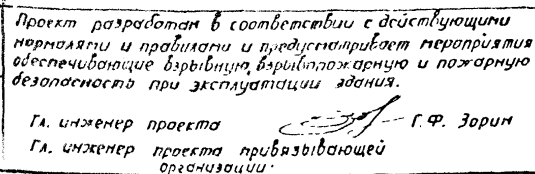 Проект разработан в соответствии с действующими
нормами и правилами и предусматривает мероприятия
обеспечивающие взрывную, взрывопожарную и пожарную
безопасность при эксплуатации здания.
Гл. инженер проекта Г.Ф. Зорин
Гл. инженер проекта привязывающей
организации·